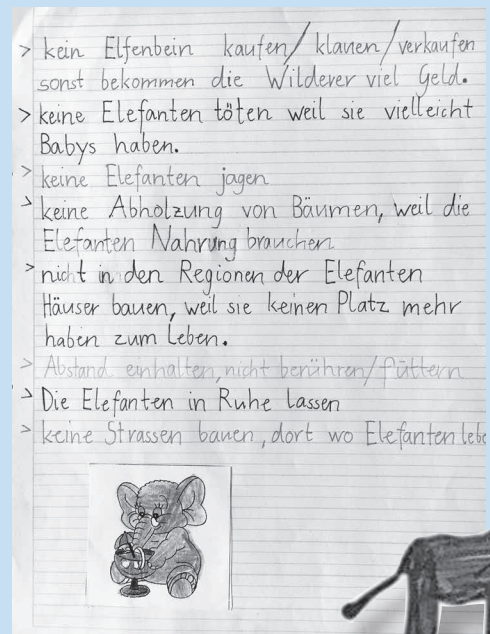 > kein Elfenbein kaufen/klauen/verkaufen
sonst bekommen die Wilderer viel Geld.
> keine Elefanten töten weil sie vielleicht
Babys haben.
> keine Elefanten jagen
> keine Abholzung von Bäumen, weil die
Elefanten Nahrung brauchen
> nicht in den Regionen der Elefanten
Häuser bauen, weil sie keinen Platz mehr
haben zum Leben.
> Abstand einhalten, nicht berühren/füttern
> Die Elefanten in Ruhe lassen
> keine Strassen bauen, dort wo Elefanten lebe